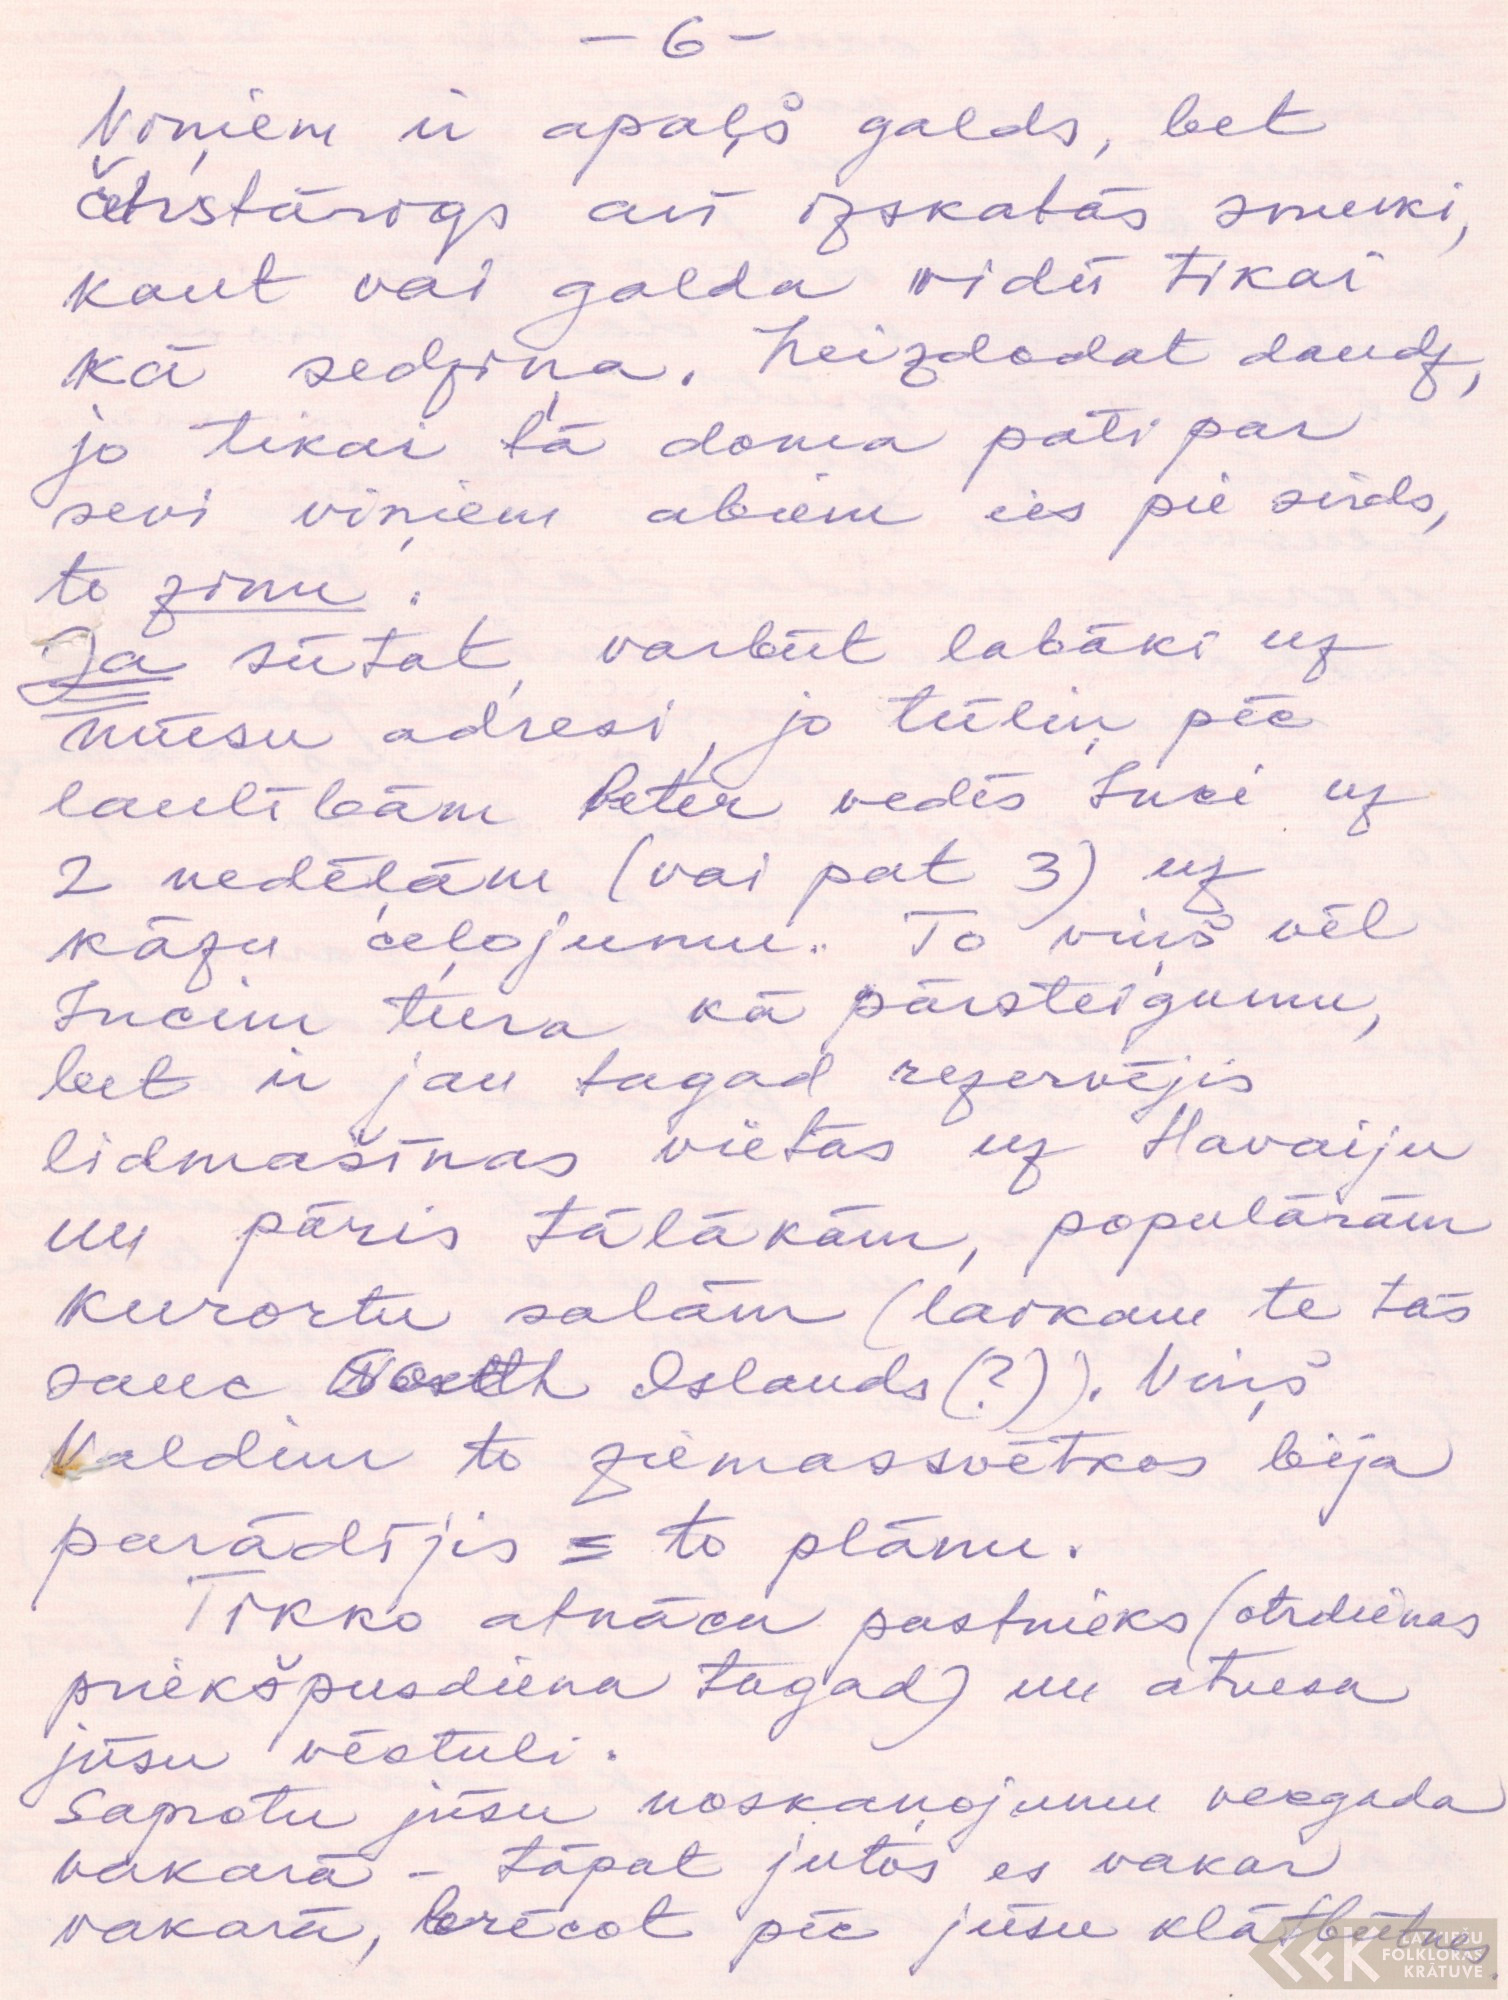 – 6 –
Viņiem ir apaļš galds, bet
četrstūrigs arī izskatās smuki,
kaut vai galda vidū tikai
kā sedziņa. Neizdodat daudz,
jo tikai tā doma pati par
sevi viņiem abiem ies pie sirds,
to zinu.
Ja sūtat, varbūt labāki uz
mūsu adresi, jo tūliņ pēc
laulībām Peter vedīs Inci uz
2 nedēļām (vai pat 3) uz
kāzu ceļojumu. To viņš vēl
Incim tura kā pārsteigumu,
bet ir jau tagad rezervējis
lidmašīnas vietas uz Havaiju
un pāris tālākām, populārām
kurortu salām (laikam te tās
sauc South Islands(?)). Viņš
Valdim to ziemassvētkos bija
parādījis = to plānu.
Tikko atnāca pastnieks (otrdienas
priekšpusdiena tagad) un atnesa
jūsu vēstuli.
Saprotu jūsu noskaņojumu vecgada
vakarā – tāpat jutos es vakar
vakarā, brēcot pēc jūsu klātbūtnes.
LATVIEŠU
FOLKLORAS
KRĀTUVE